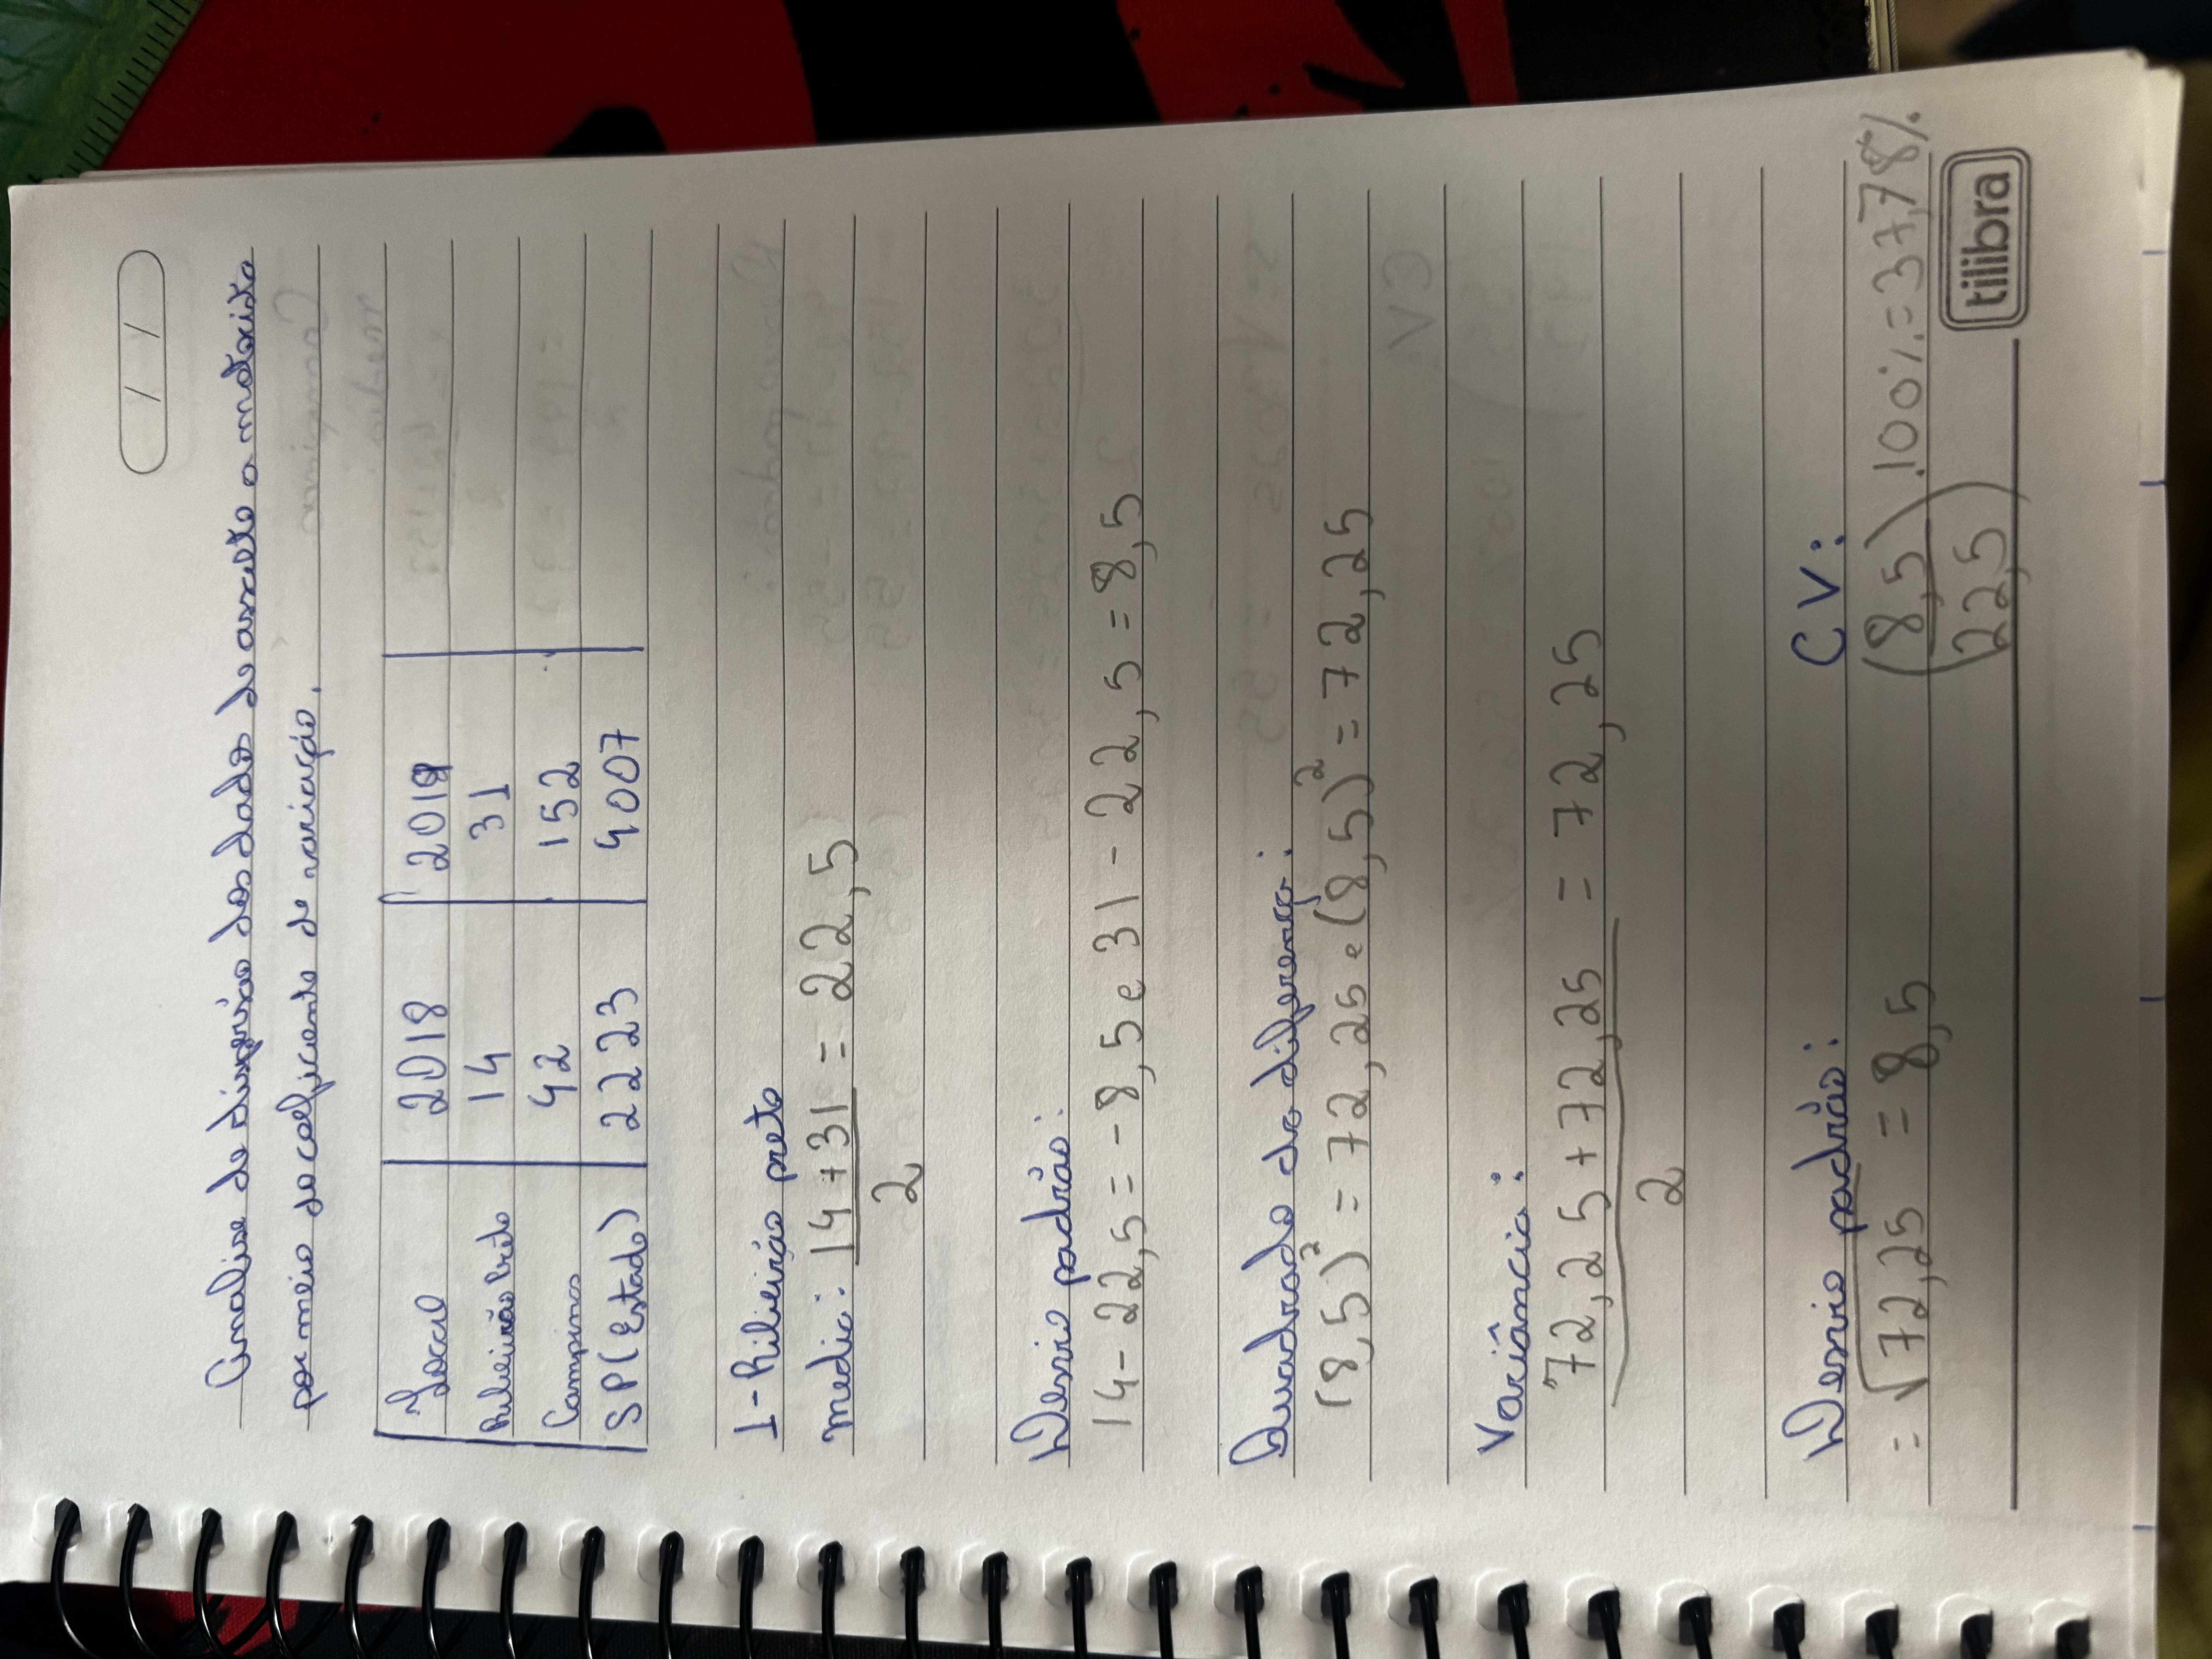 / /
Analise de dispersão dos dados de assalto a motorista
por meio do coeficiente de variação.
Local 2018 2019
Ribeirão Preto 14 31
Campinas 42 152
SP (Estado) 2223 4007
1 - Ribeirão preto
media: 14 + 31 = 22,5
2
Desvio padrão:
14 - 22,5 = -8,5 e 31 - 22,5 = 8,5
Quadrado da diferença:
(8,5)² = 72,25 e (8,5)² = 72,25
Variância:
72,25 + 72,25 = 72,25
2
Desvio padrão: CV:
= √72,25 = 8,5 (8,5 / 22,5) . 100% = 37,78%
tilibra